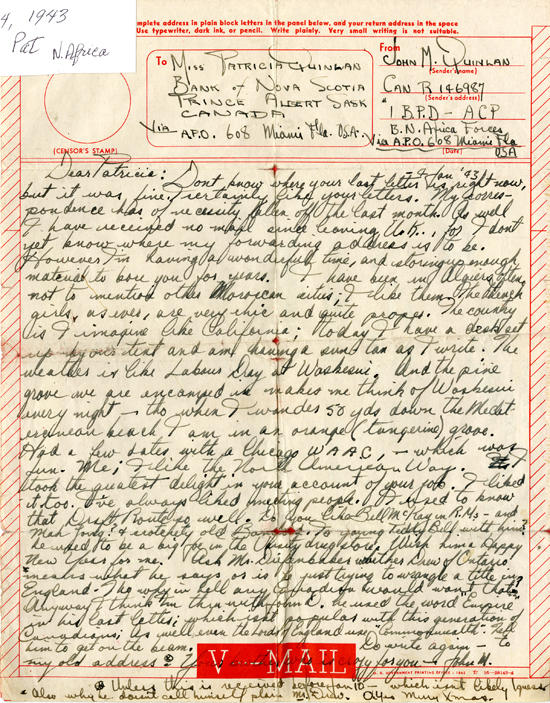 4, 1943
Pat N. Africa
complete address in plain block letters in the panel below, and your return address in the space
Use typewriter, dark ink, or pencil. Write plainly. Very small writing is not suitable.
To
Miss Patricia Quinlan
Bank of Nova Scotia
Prince Albert Sask
CANADA
Via A.P.O. 608 Miami Fla. USA.
From
John M. Quinlan
(Sender's name)
Can R 146987
(Sender's address)
1 B.P.D - ACP
B.N. Africa Forces
Via A.P.O. 608 Miami Fla
USA
(Date)
(CENSOR'S STAMP)
4 Jan '43
Dear Patricia: Dont know where your last letter is right now,
but it was fine. certainly like your letters. My corres-
pondence has of necessity fallen off the last month. As well
I have received no mail since leaving U.K.. for I don't
yet know where my forwarding address is to be.
However I'm having a wonderful time, and storing up enough
material to bore you for years. I have been in Algiers often,
not to mention other Moroccan cities, I like them. The French
girls, as ever, are very chic and quite proper. The country
is I imagine like California; today I have a desk set
up by our tent and am having a sun tan as I write. The
weather is like Labour Day at Waskesui. And the pine
grove we are encamped in makes me think of Waskesui
every night - tho when I wander 50 yds down the Medit-
eranean beach I am in an orange (tangerine) grove.
Had a few dates with a Chicago W.A.A.C, - which was
fun. Me; I like the North American Way. I
took the greatest delight in your account of your job. I liked
it too. I've always liked meeting people. I used to know
that Draft Route so well. Do you like Bill McKay in R.H's - and
Mah Jong? & crotchety old To young Teddy Bill with him?
he used to be a big in the drug store. Wish him a Happy
New Year for me. Ask Mr. Diefenbaker whether Drew of Ontario
means what he says or is he just trying to wrangle a title in
England. Why in hell any Canadian would want that
Anyway I think I'm thru with John D. he used the word Empire
in his last letter; which isnt popular with this generation of
Canadians; As well even the Lords England use Commonwealth. Tell
him to get on the beam. Do write again - to
my old address Your brother who is crazy for you - John M.
V···—MAIL
U. S. GOVERNMENT PRINTING OFFICE : 1942
Unless this is received before Jan 10 - which isn't likely I guess
Also why he doesn't call himself plain Mr. Drew. Merry Xmas.